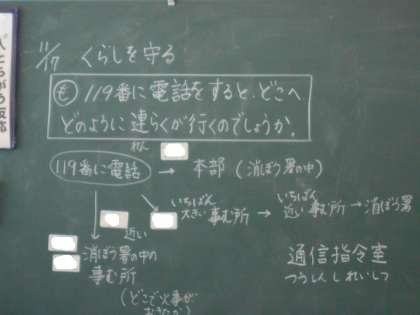 11/17 くらしを守る
も 119番に電話をすると、どこへ
どのように連らくが行くのでしょうか。
れん
119番に電話 → 本部(消ぼう署の中)
いちばん
大きい事む所 →
いちばん
近い事む所 → 消ぼう署
近い
消ぼう署の中の
事む所
(どこで火事が
おきたか)
通信指令室
つうしんしれいしつ